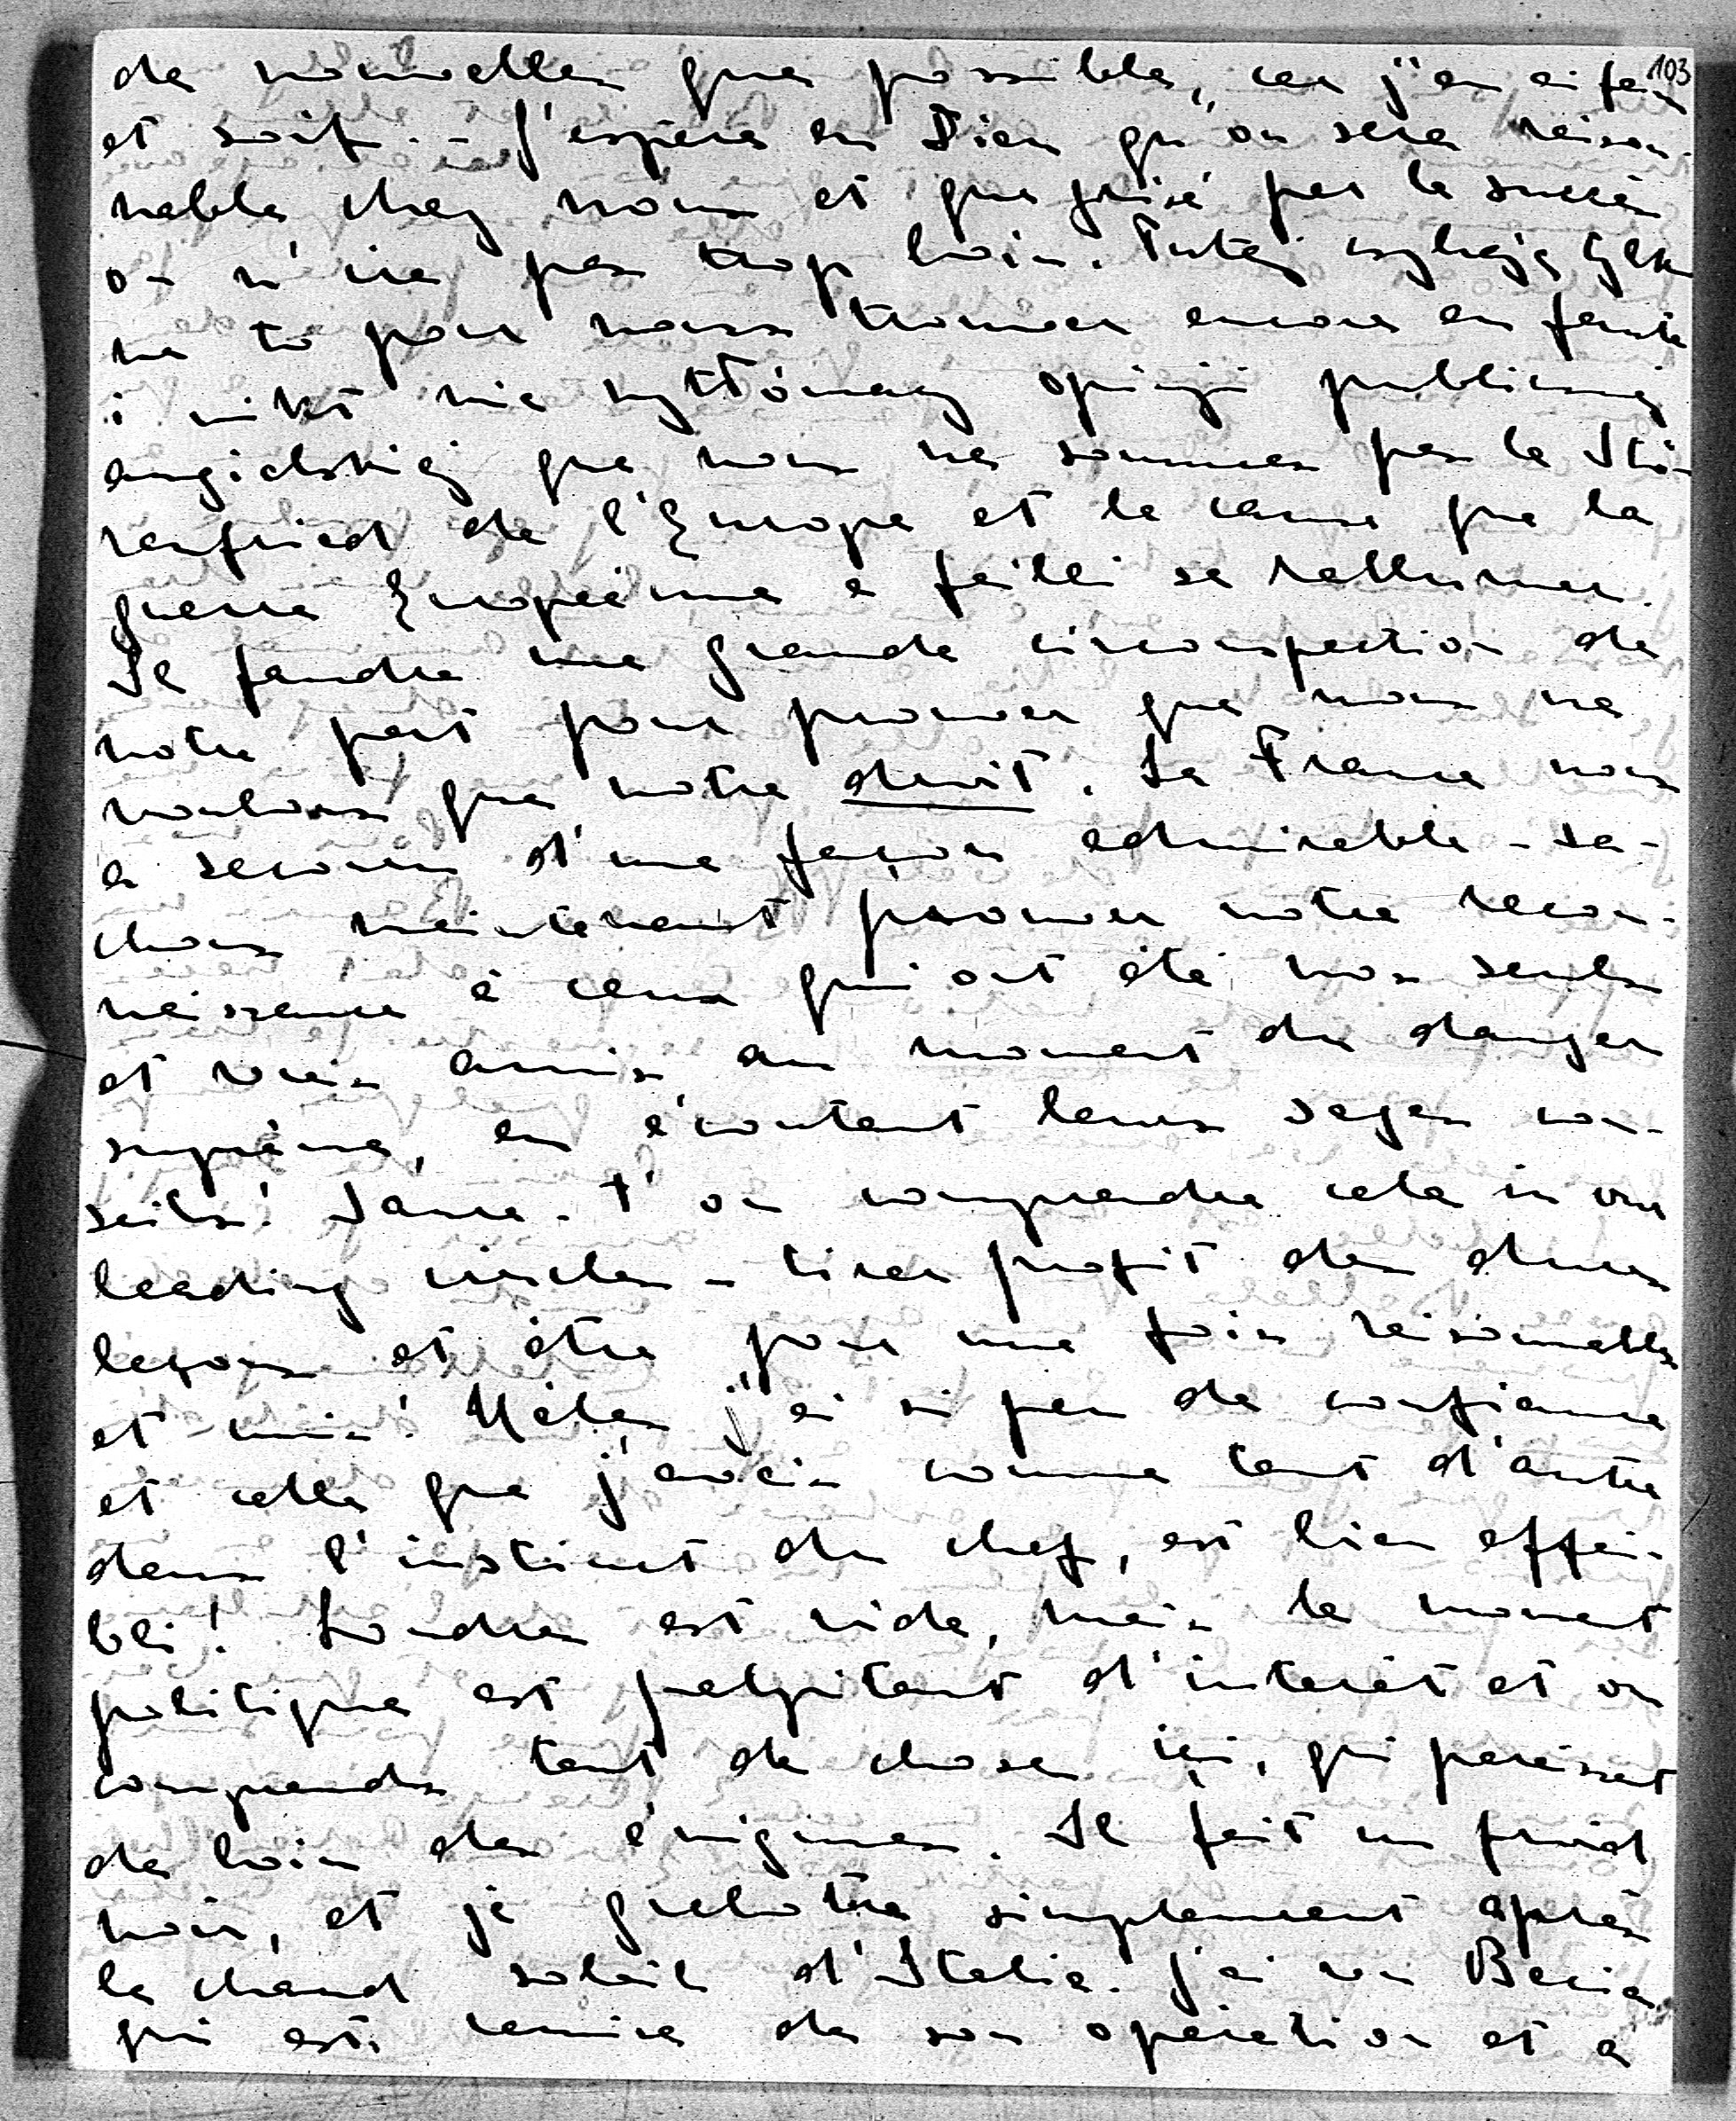 103
de nouvelles que possible, car j'en ai faim
et soif. - J'espère en Dieu qu'on sera raison-
nable chez nous et que grisé par le succès
on n'ira pas trop loin. Tutaj czyhają tylko
na to pour nous trouver encore en faute
i nikt nie wytłómaczy opinji publicznej
angielskiej que nous ne sommes pas le Stö-
renfried de l'Europe et la cause que la
guerre Européenne a failli se rallumer.
Il faudra une grande circonspection de
notre part pour prouver que nous ne
voulons que notre droit. La France nous
a secouru d'une façon admirable - sa-
chons maintenant prouver notre recon-
naissance à ceux qui ont été nos seuls
et vrais amis au moment du danger
suprême, en écoutant leurs sages con-
seils! Saura-t'on comprendre cela in our
leading circles - tirer profit des dures
leçons et être pour une fois raisonnables
et unis! Hélas j'ai si peu de confiance
et celle que j'avais comme tant d'autre
dans l'instinct du chef, est bien affai-
bli! Londres est vide, mais le moment
politique est palpitant d'interêt et on
comprends tant de choses ici, qui paraissent
de loin des énigmes. Il fait un froid
noir, et je grelotte simplement après
le chaud soleil d'Italie. J'ai vu
qui est remise de son opération et a